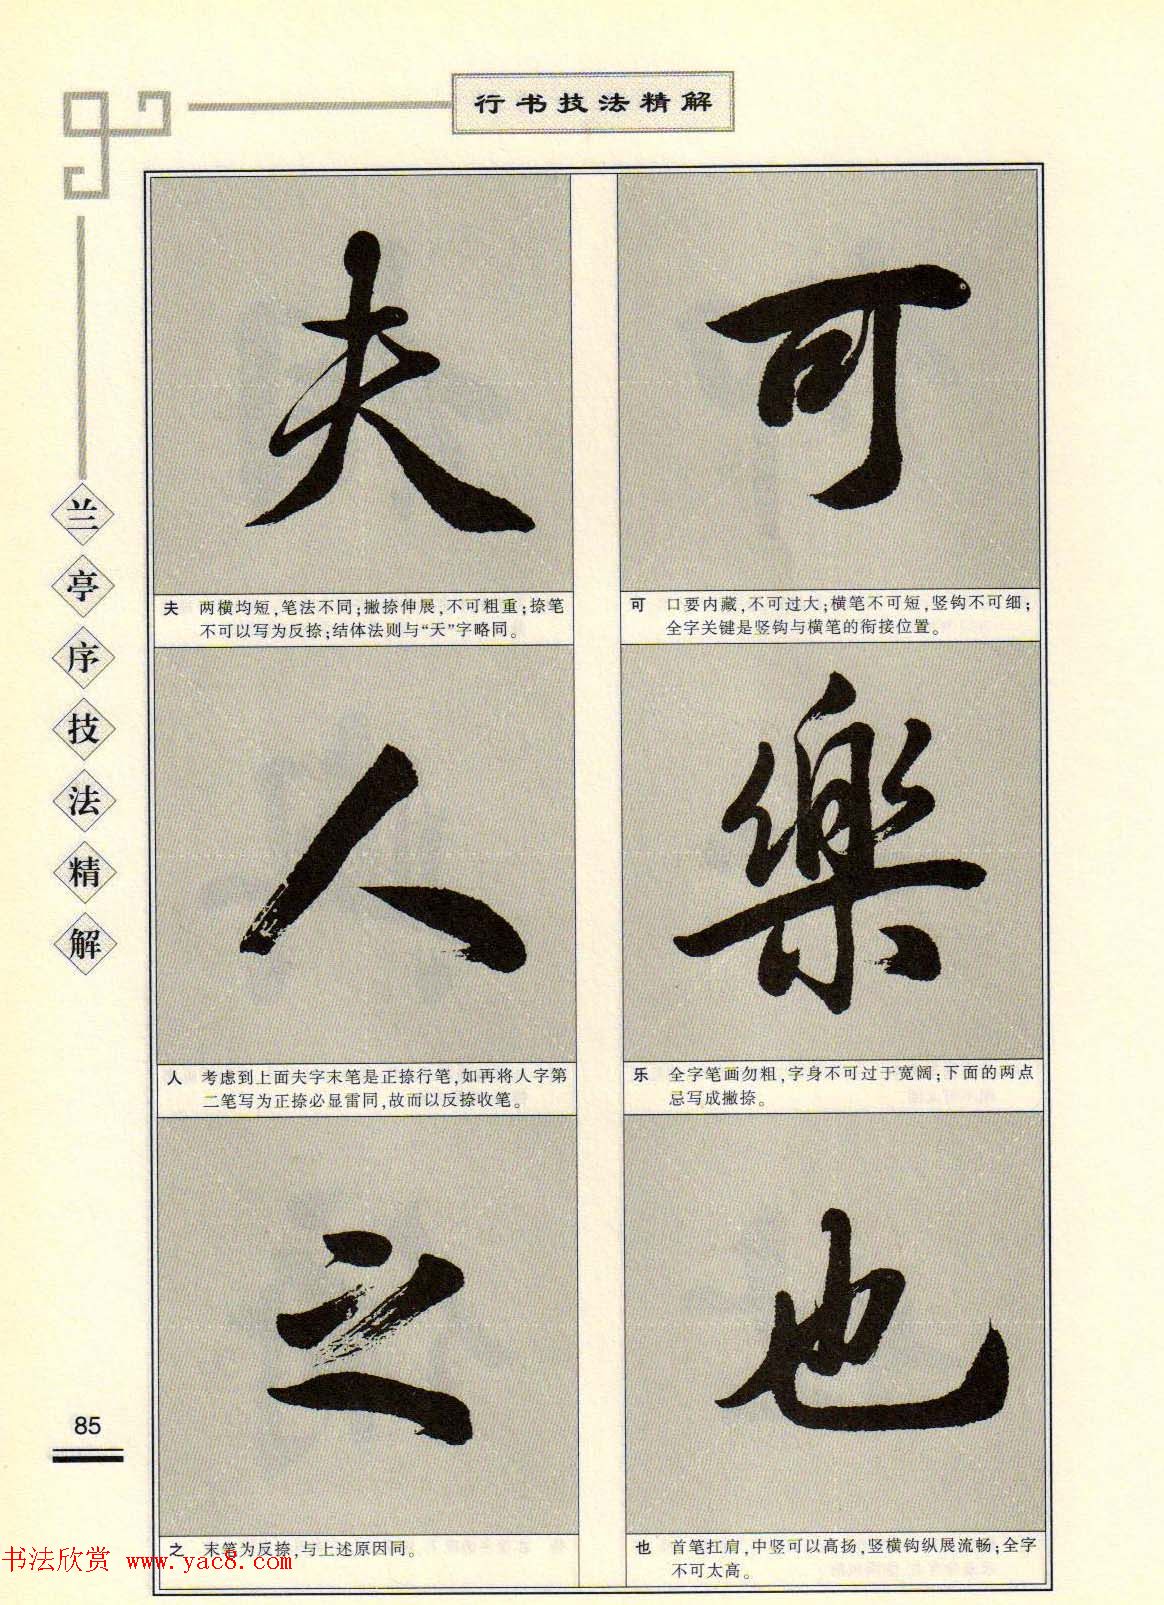 行书技法精解
兰亭序技法精解
可
可 口要内藏,不可过大;横笔不可短,竖钩不可细;
全字关键是竖钩与横笔的衔接位置。
樂
乐 全字笔画勿粗,字身不可过于宽阔;下面的两点
忌写成撇捺。
也
也 首笔扛肩,中竖可以高扬,竖横钩纵展流畅;全字
不可太高。
夫
夫 两横均短,笔法不同;撇捺伸展,不可粗重;捺笔
不可以写为反捺;结体法则与“天”字略同。
人
人 考虑到上面夫字末笔是正捺行笔,如再将人字第
二笔写为正捺必显雷同,故而以反捺收笔。
之
之 末笔为反捺,与上述原因同。
85
书法欣赏 www.yac8.com